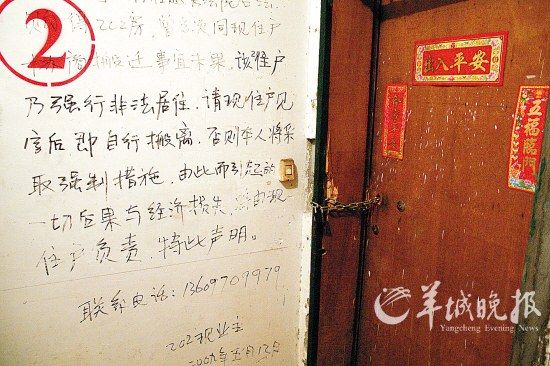 2
202房
事宜未果，该住户
乃强行非法居住，请现住户见
字后即自行搬离，否则本人将采
取强制措施，由此而引起的
一切后果与经济损失，由现
住户负责，特此声明。
联系电话：13609709979
202现业主
出入平安
五福临门
羊城晚报
Yangcheng Evening News